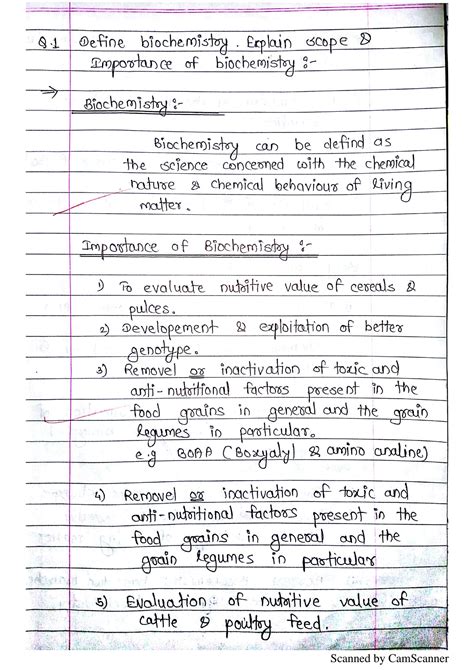 Q.1 Define biochemistry. Explain scope &
Importance of biochemistry :-
→
Biochemistry :-
Biochemistry can be defind as
the science concerned with the chemical
nature & chemical behaviour of living
matter.
Importance of Biochemistry :-
1) To evaluate nutritive value of cereals &
pulces.
2) Developement & exploitation of better
genotype.
3) Removel or inactivation of toxic and
anti-nutritional factors present in the
food grains in general and the grain
legumes in particular.
e.g BOAA (Boxyaly) & amino analine)
4) Removel or inactivation of toxic and
anti-nutritional factors present in the
food grains in general and the
grain legumes in particular
5) Evaluation of nutritive value of
cattle & poultry feed.
Scanned by CamScanner